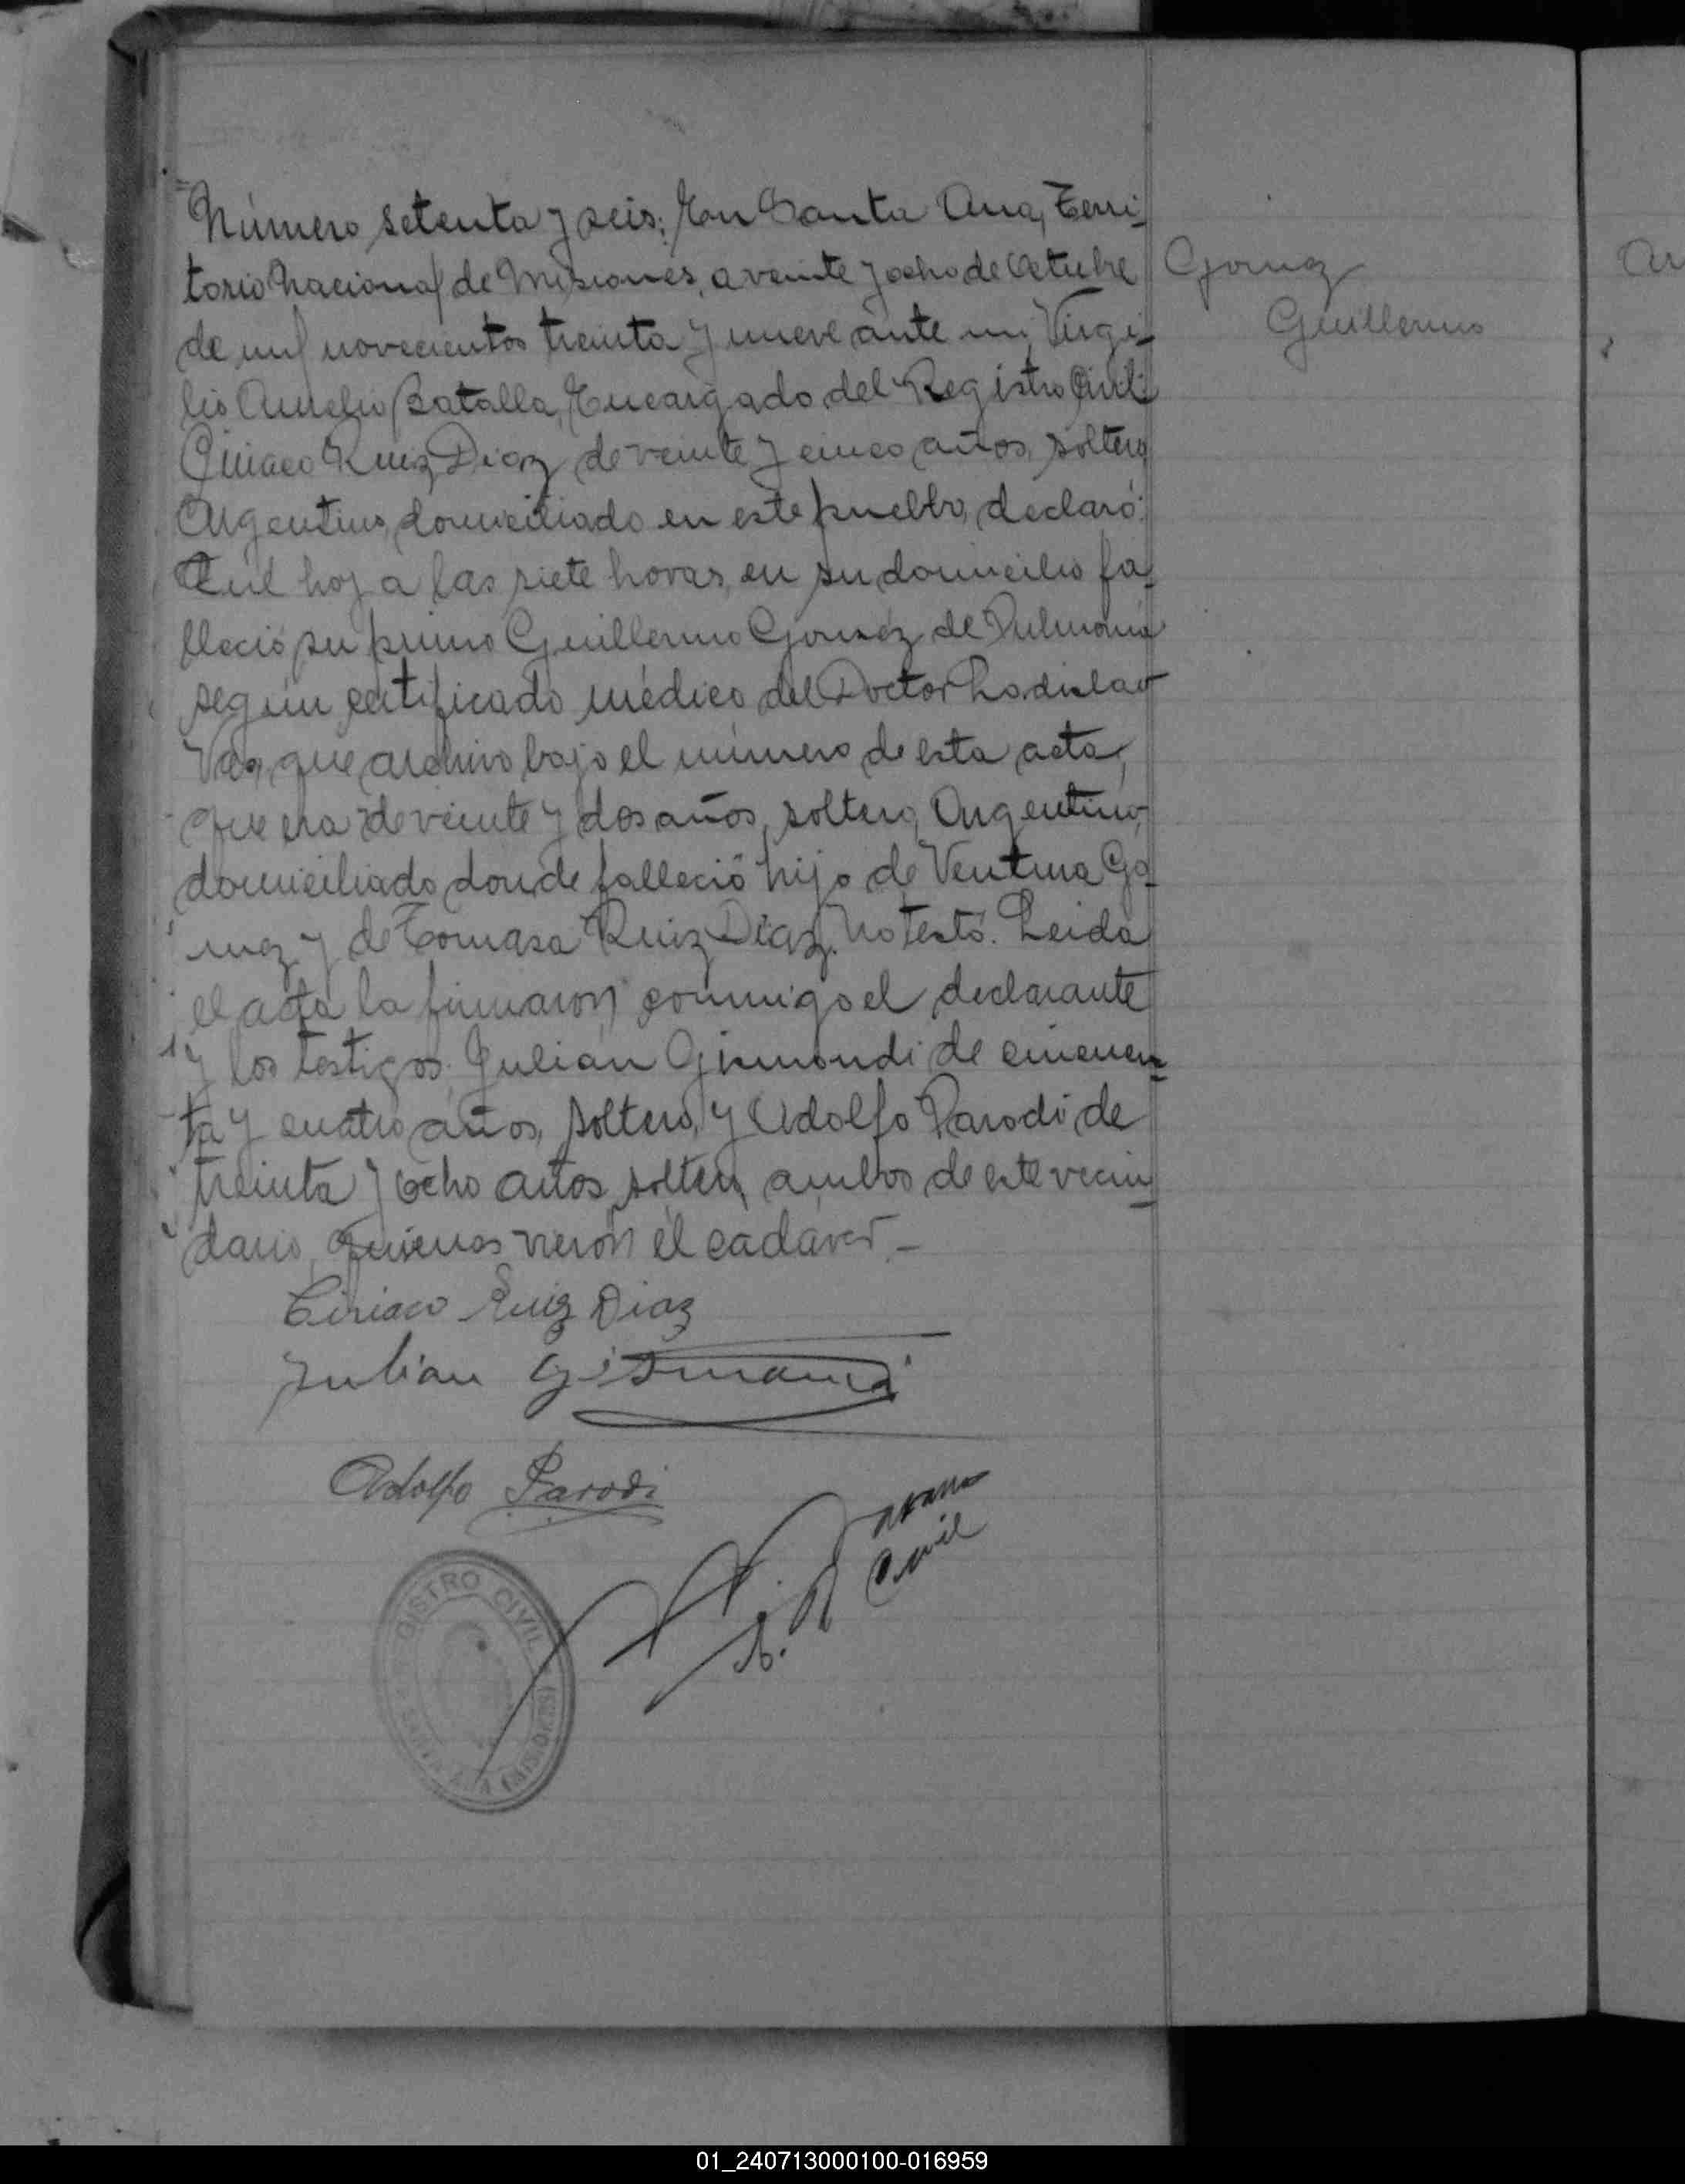 Número setenta y seis: En Santa Ana, Terri-
torio Nacional de Misiones, a veinte y ocho de Octubre
de mil novecientos treinta y nueve ante mi, Virgi-
lio Aurelio Batalla, Encargado del Registro Civil:
Ciriaco Ruiz Diaz de veinte y cinco años, soltero,
Argentino, domiciliado en este pueblo, declaró:
Que hoy a las siete horas, en su domicilio fa-
lleció su primo Guillermo Gomez de Pulmonía
según certificado médico del Doctor Ladislao
que archivo bajo el número de esta acta,
que era de veinte y dos años, soltero, Argentino,
domiciliado donde falleció hijo de Ventura Go-
mez y de Tomasa Ruiz Diaz. No testó. Leida
el acta la firmaron conmigo el declarante
y los testigos: Julián Gismondi de cincuen-
ta y cuatro años, soltero, y Adolfo Parodi de
treinta y ocho años, soltero, ambos de este vecin-
dario, quienes vieron el cadáver.-
Ciriaco Ruiz Diaz
Julian Gismondi
Adolfo Parodi
Civil
GISTRO CIVIL
SANTA ANA (MISIONES)
Gomez
Guillermo
01_240713000100-016959